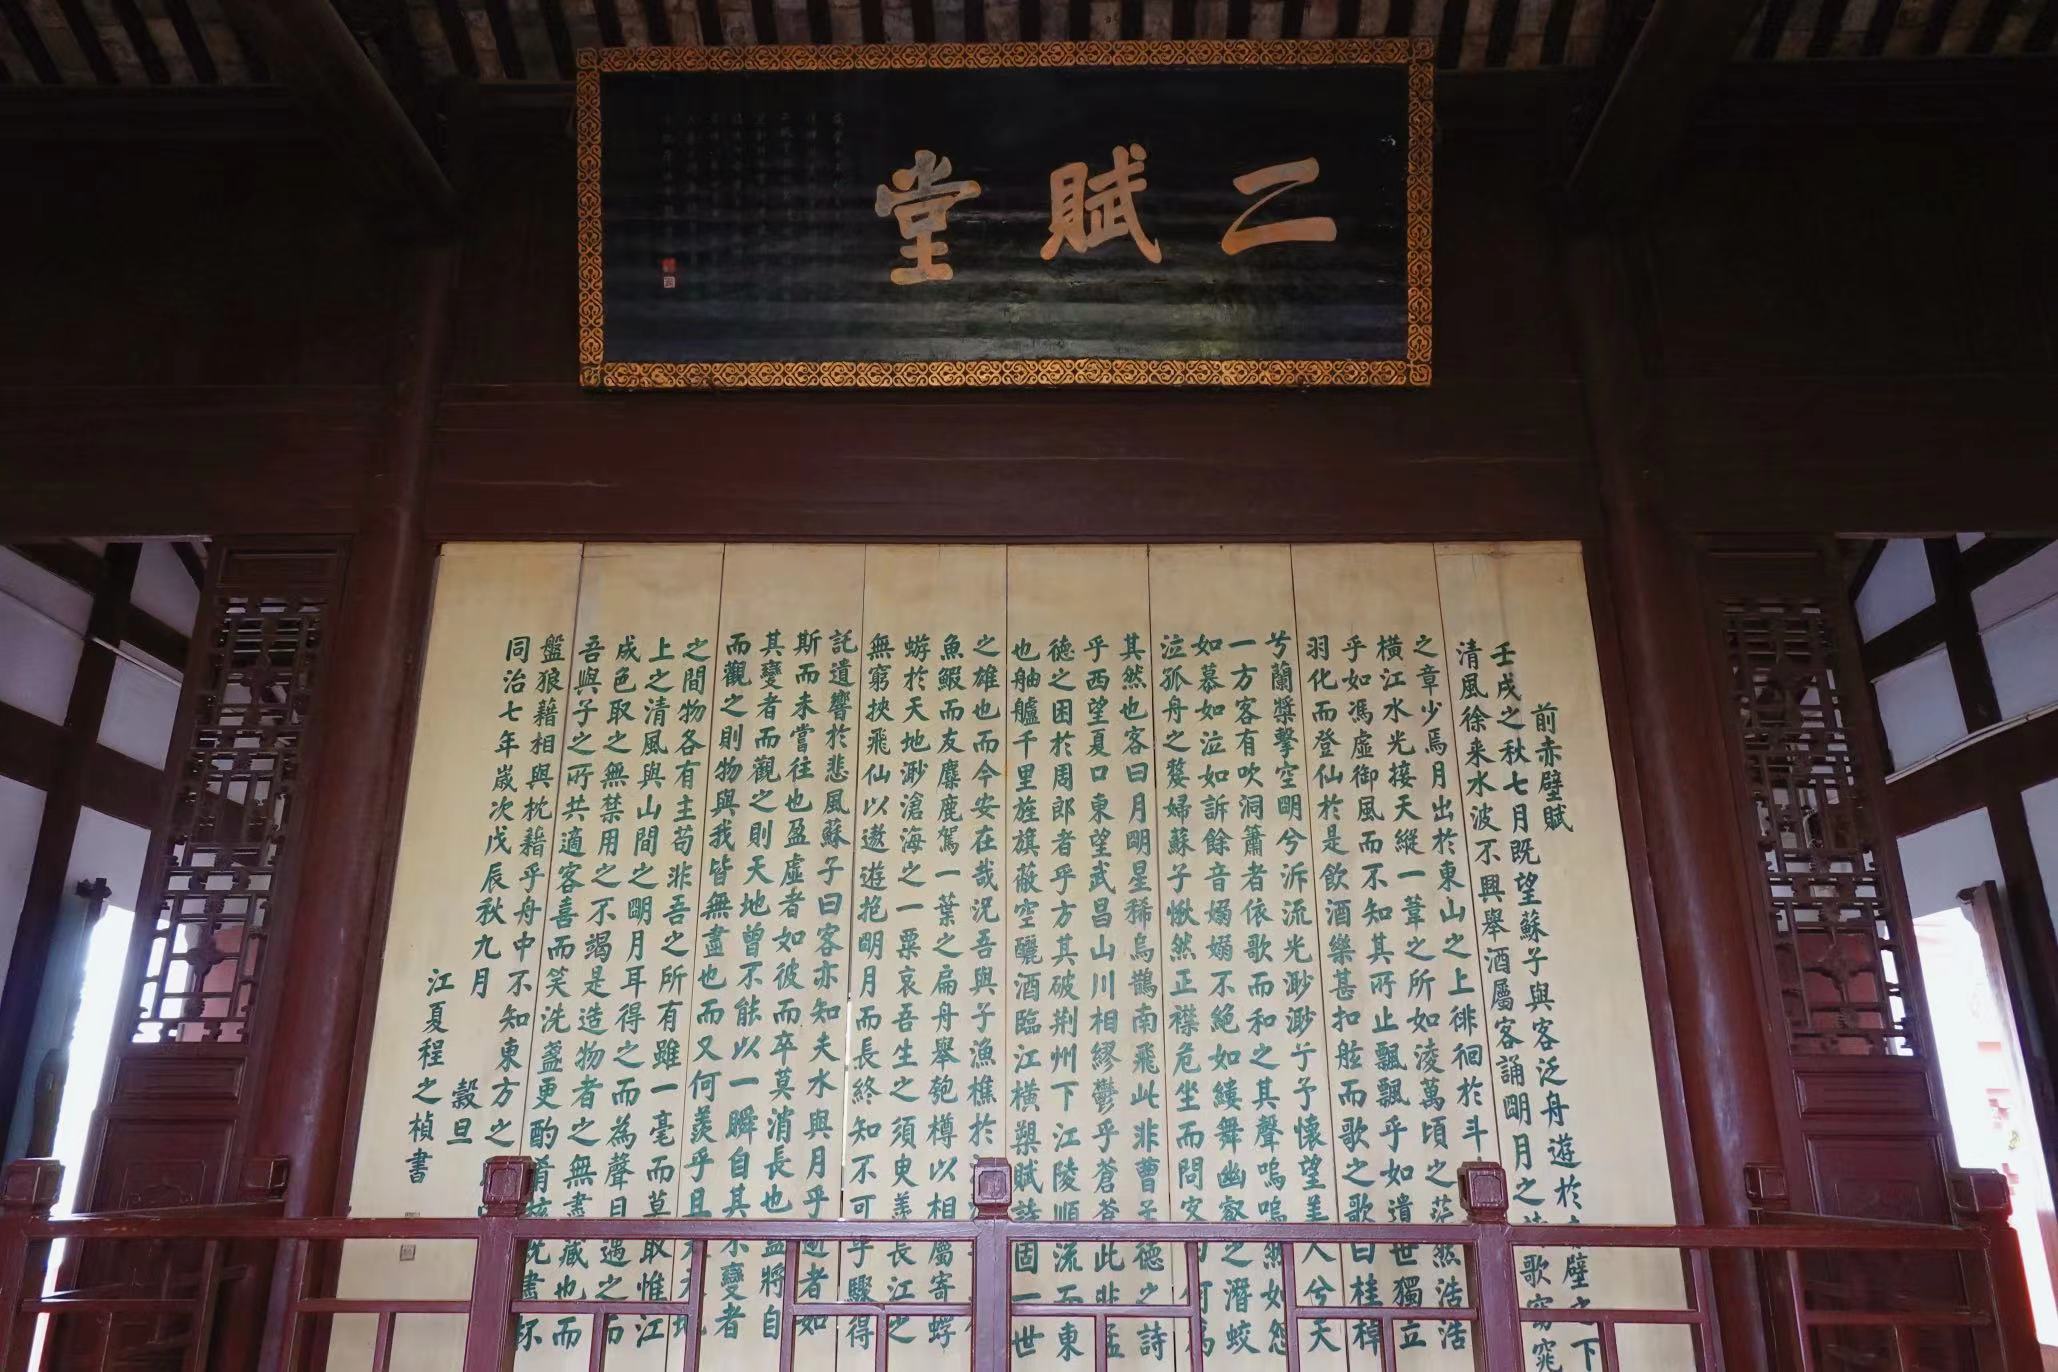 二賦堂
前赤壁賦
壬戌之秋七月既望蘇子與客泛舟遊於壁之下
清風徐来水波不興舉酒屬客誦明月之歌窈窕
之章少焉月出於東山之上徘徊於斗
橫江水光接天縱一葦之所如淩萬頃之茫然浩浩
乎如馮虛御風而不知其所止飄飄乎如遺世獨立
羽化而登仙於是飲酒樂甚扣舷而歌之歌曰桂棹
兮蘭槳擊空明兮泝流光渺渺兮予懷望美人兮天
一方客有吹洞簫者依歌而和之其聲嗚嗚然如怨
如慕如泣如訴餘音嫋嫋不絕如縷舞幽壑之潛蛟
泣孤舟之嫠婦蘇子愀然正襟危坐而問客何為
其然也客曰月明星稀烏鵲南飛此非曹孟德之詩
乎西望夏口東望武昌山川相繆鬱乎蒼蒼此非孟
德之困於周郎者乎方其破荆州下江陵順流而東
也舳艫千里旌旗蔽空釃酒臨江橫槊賦詩固一世
之雄也而今安在哉況吾與子漁樵於
魚鰕而友麋鹿駕一葉之扁舟舉匏樽以相屬寄蜉
蝣於天地渺滄海之一粟哀吾生之須臾羨長江之
無窮挾飛仙以遨遊抱明月而長終知不可乎驟得
託遺響於悲風蘇子曰客亦知夫水與月乎逝者如
斯而未嘗往也盈虛者如彼而卒莫消長也蓋將自
其變者而觀之則天地曾不能以一瞬自其不變者
而觀之則物與我皆無盡也而又何羨乎且天地
之間物各有主苟非吾之所有雖一毫而莫取惟江
上之清風與山間之明月耳得之而為聲目遇之而
成色取之無禁用之不竭是造物者之無盡藏也而
吾與子之所共適客喜而笑洗盞更酌肴核既盡杯
盤狼藉相與枕藉乎舟中不知東方之
同治七年歲次戊辰秋九月穀旦
江夏程之楨書